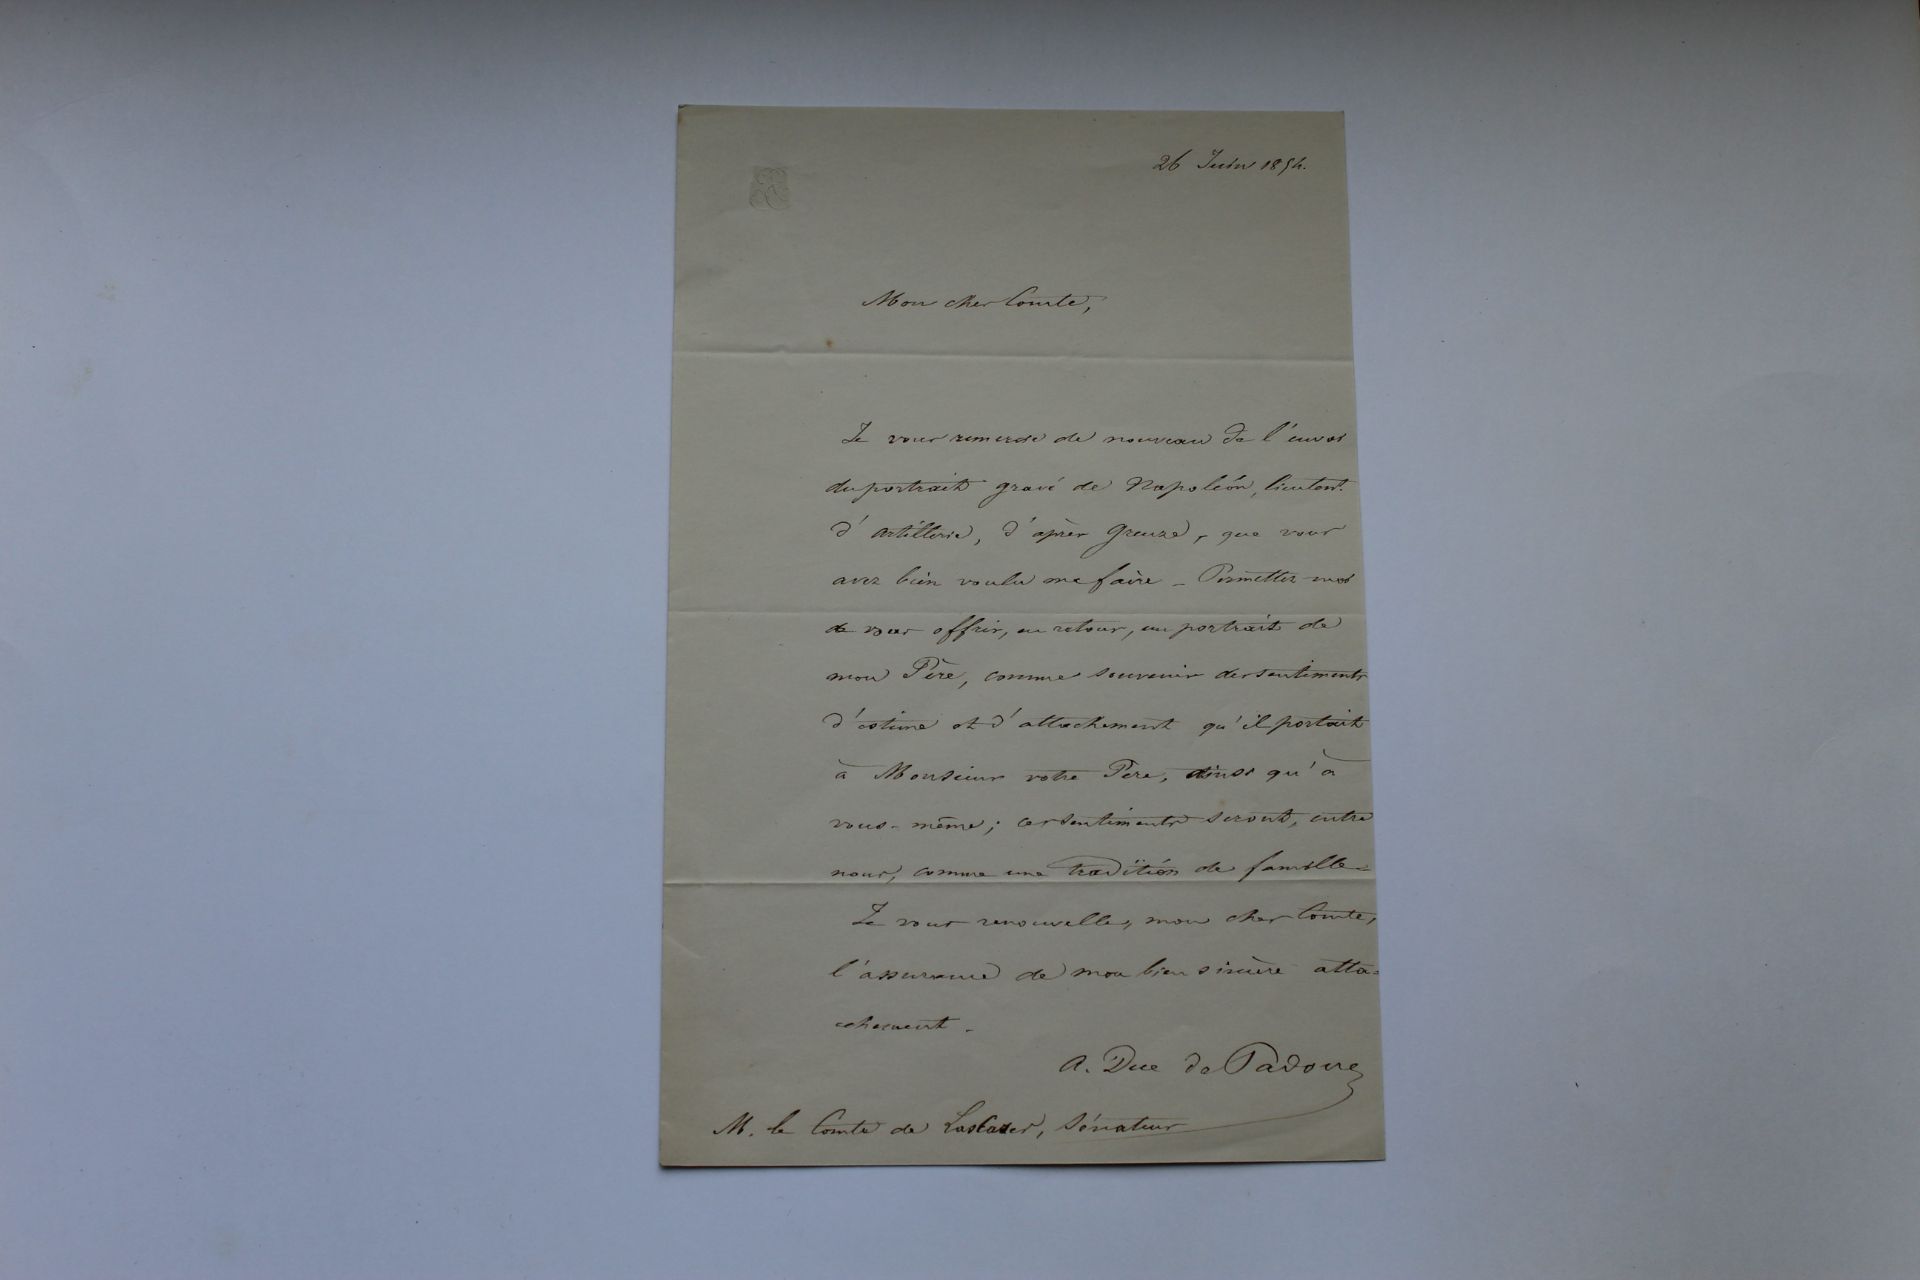 26 Juin 1854.
Mon cher Comte,
Je vous remercie de nouveau de l'envoi
du portrait gravé de Napoléon, lieutent.
d'artillerie, d'après Greuze, que vous
avez bien voulu me faire - Permettez-moi
de vous offrir, en retour, un portrait de
mon Père, comme souvenir des sentiments
d'estime et d'attachement qu'il portait
à Monsieur votre Père, ainsi qu'à
vous-même; ces sentiments seront, entre
nous, comme une tradition de famille -
Je vous renouvelle, mon cher Comte,
l'assurance de mon bien sincère atta=
chement.
A. Duc de Padoue
M. le Comte de LasCases, Sénateur